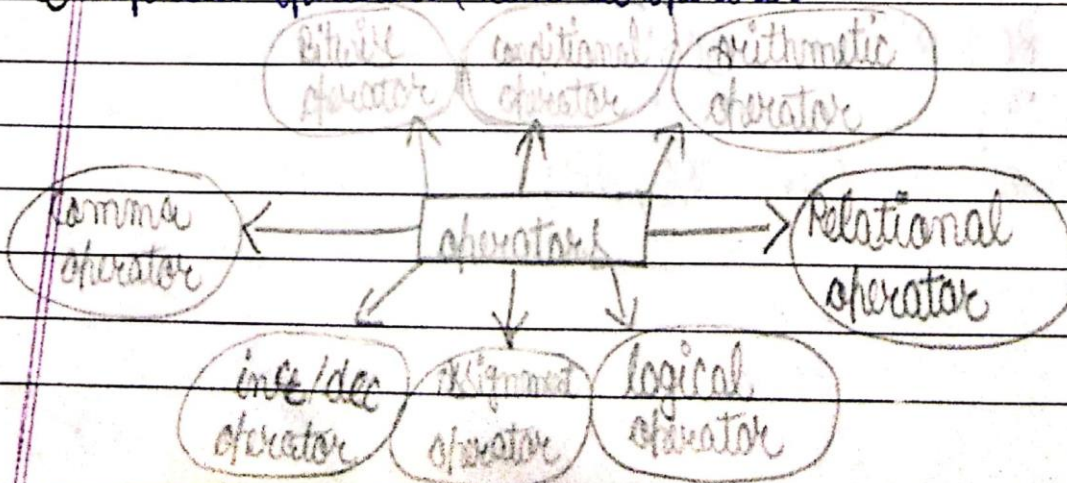 Bitwise operator
conditional operator
Arithmetic operator
Comma operator
operators
Relational operator
inc/dec operator
Assignment operator
logical operator